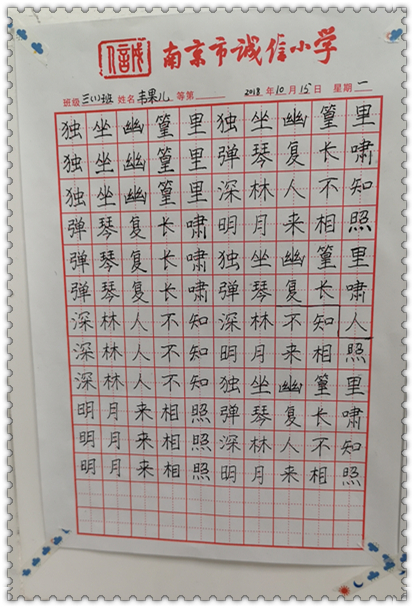 信誠 南京市诚信小学
班级 三(1)班 姓名 韦果儿 等第 2018年10月15日 星期一
独坐幽篁里独坐幽篁里
独坐幽篁里弹琴复长啸
独坐幽篁里深林人不知
弹琴复长啸明月来相照
弹琴复长啸独坐幽篁里
弹琴复长啸弹琴复长啸
深林人不知深林不知人
深林人不知明月来相照
深林人不知独坐幽篁里
明月来相照弹琴复长啸
明月来相照深林人不知
明月来相照明月来相照